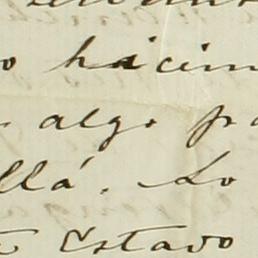 o hicim
algo pa
llá. Lo
Estado